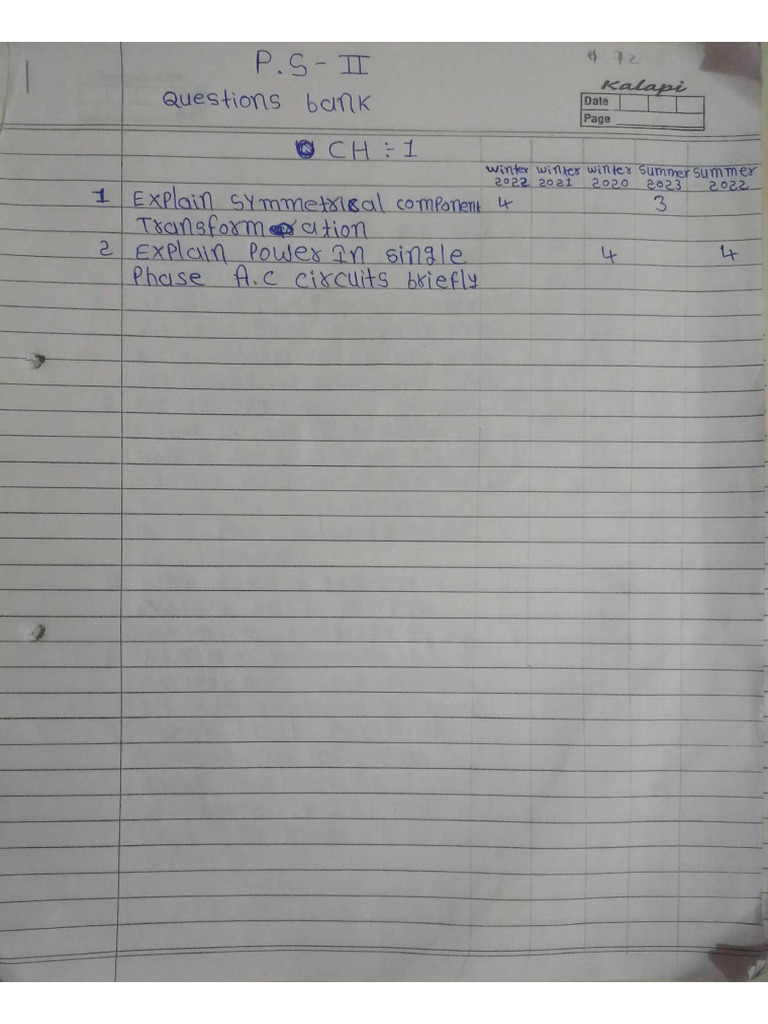 P.S - II
# 72
Questions bank
Kalapi
Date
Page
CH :- 1
winter winter winter summer summer
2022 2021 2020 2023 2022
1 Explain symmetrical component 4 3
Transformation
2 Explain Power In single 4 4
Phase A.C circuits briefly